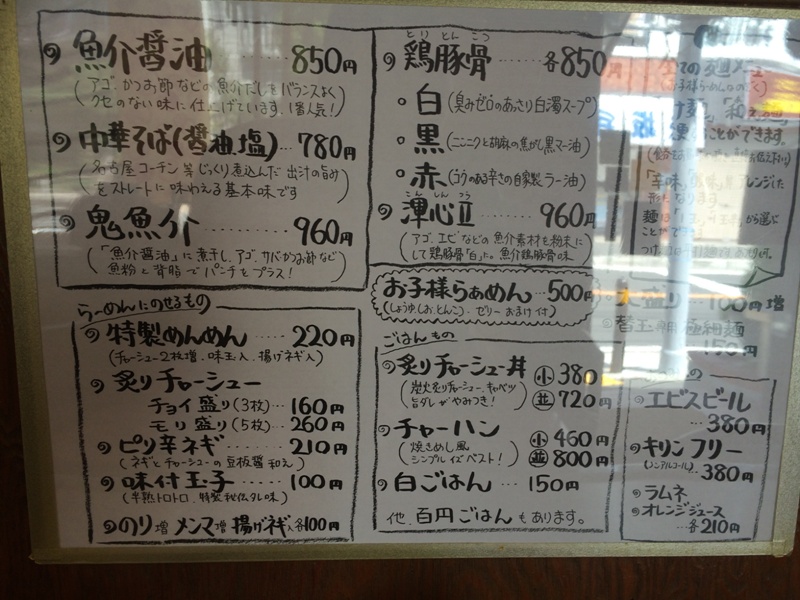 魚介醤油……850円
(アゴ、かつお節などの魚介だしをバランスよく
クセのない味に仕上げています。1番人気!)
中華そば(醤油、塩)…780円
(名古屋コーチン等じっくり煮込んだ出汁の旨み
をストレートに味わえる基本味です)
鬼魚介……960円
(「魚介醤油」に煮干し、アゴ、サバかつお節など
魚粉と背脂でパンチをプラス!)
とりとんこつ
鶏豚骨…各850
白(臭みゼロのあさり白濁スープ)
黒(ニンニクと胡麻の焦がし黒マー油)
赤(うまみのある辛さの自家製ラー油)
こんしんつう
渾心Ⅱ……960円
(アゴ、エビなどの魚介素材を粉末に
して鶏豚骨「白」に。魚介鶏豚骨味)
お子様らぁめん…500円
(しょうゆ、しお、とんこつ・ゼリーおまけ付)
らーめんにのせるもの
特製めんめん…220円
(チャーシュー2枚増、味玉入、揚げネギ入)
炙りチャーシュー
チョイ盛り(3枚)…160円
モリ盛り(5枚)…260円
ピリ辛ネギ……210円
(ネギとチャーシューの豆板醤和え)
味付玉子……100円
(半熟トロトロ、特製秘伝タレ味)
のり増 メンマ増 揚げネギ入各100円
ごはんもの
炙りチャーシュー丼 小 380
(炭火炙りチャーシュー、キャベツ
旨ダレがやみつき!) 並 720円
チャーハン 小 460円
(焼きめし風
シンプルイズベスト!) 並 800円
白ごはん…150円
他、百円ごはんもあります。
ことができます。
麺は
から選ぶ
ことができ
100円増
替玉 極細麺
150円
エビスビール
…380円
キリンフリー
(ノンアルコール)…380円
ラムネ
オレンジジュース
…各210円